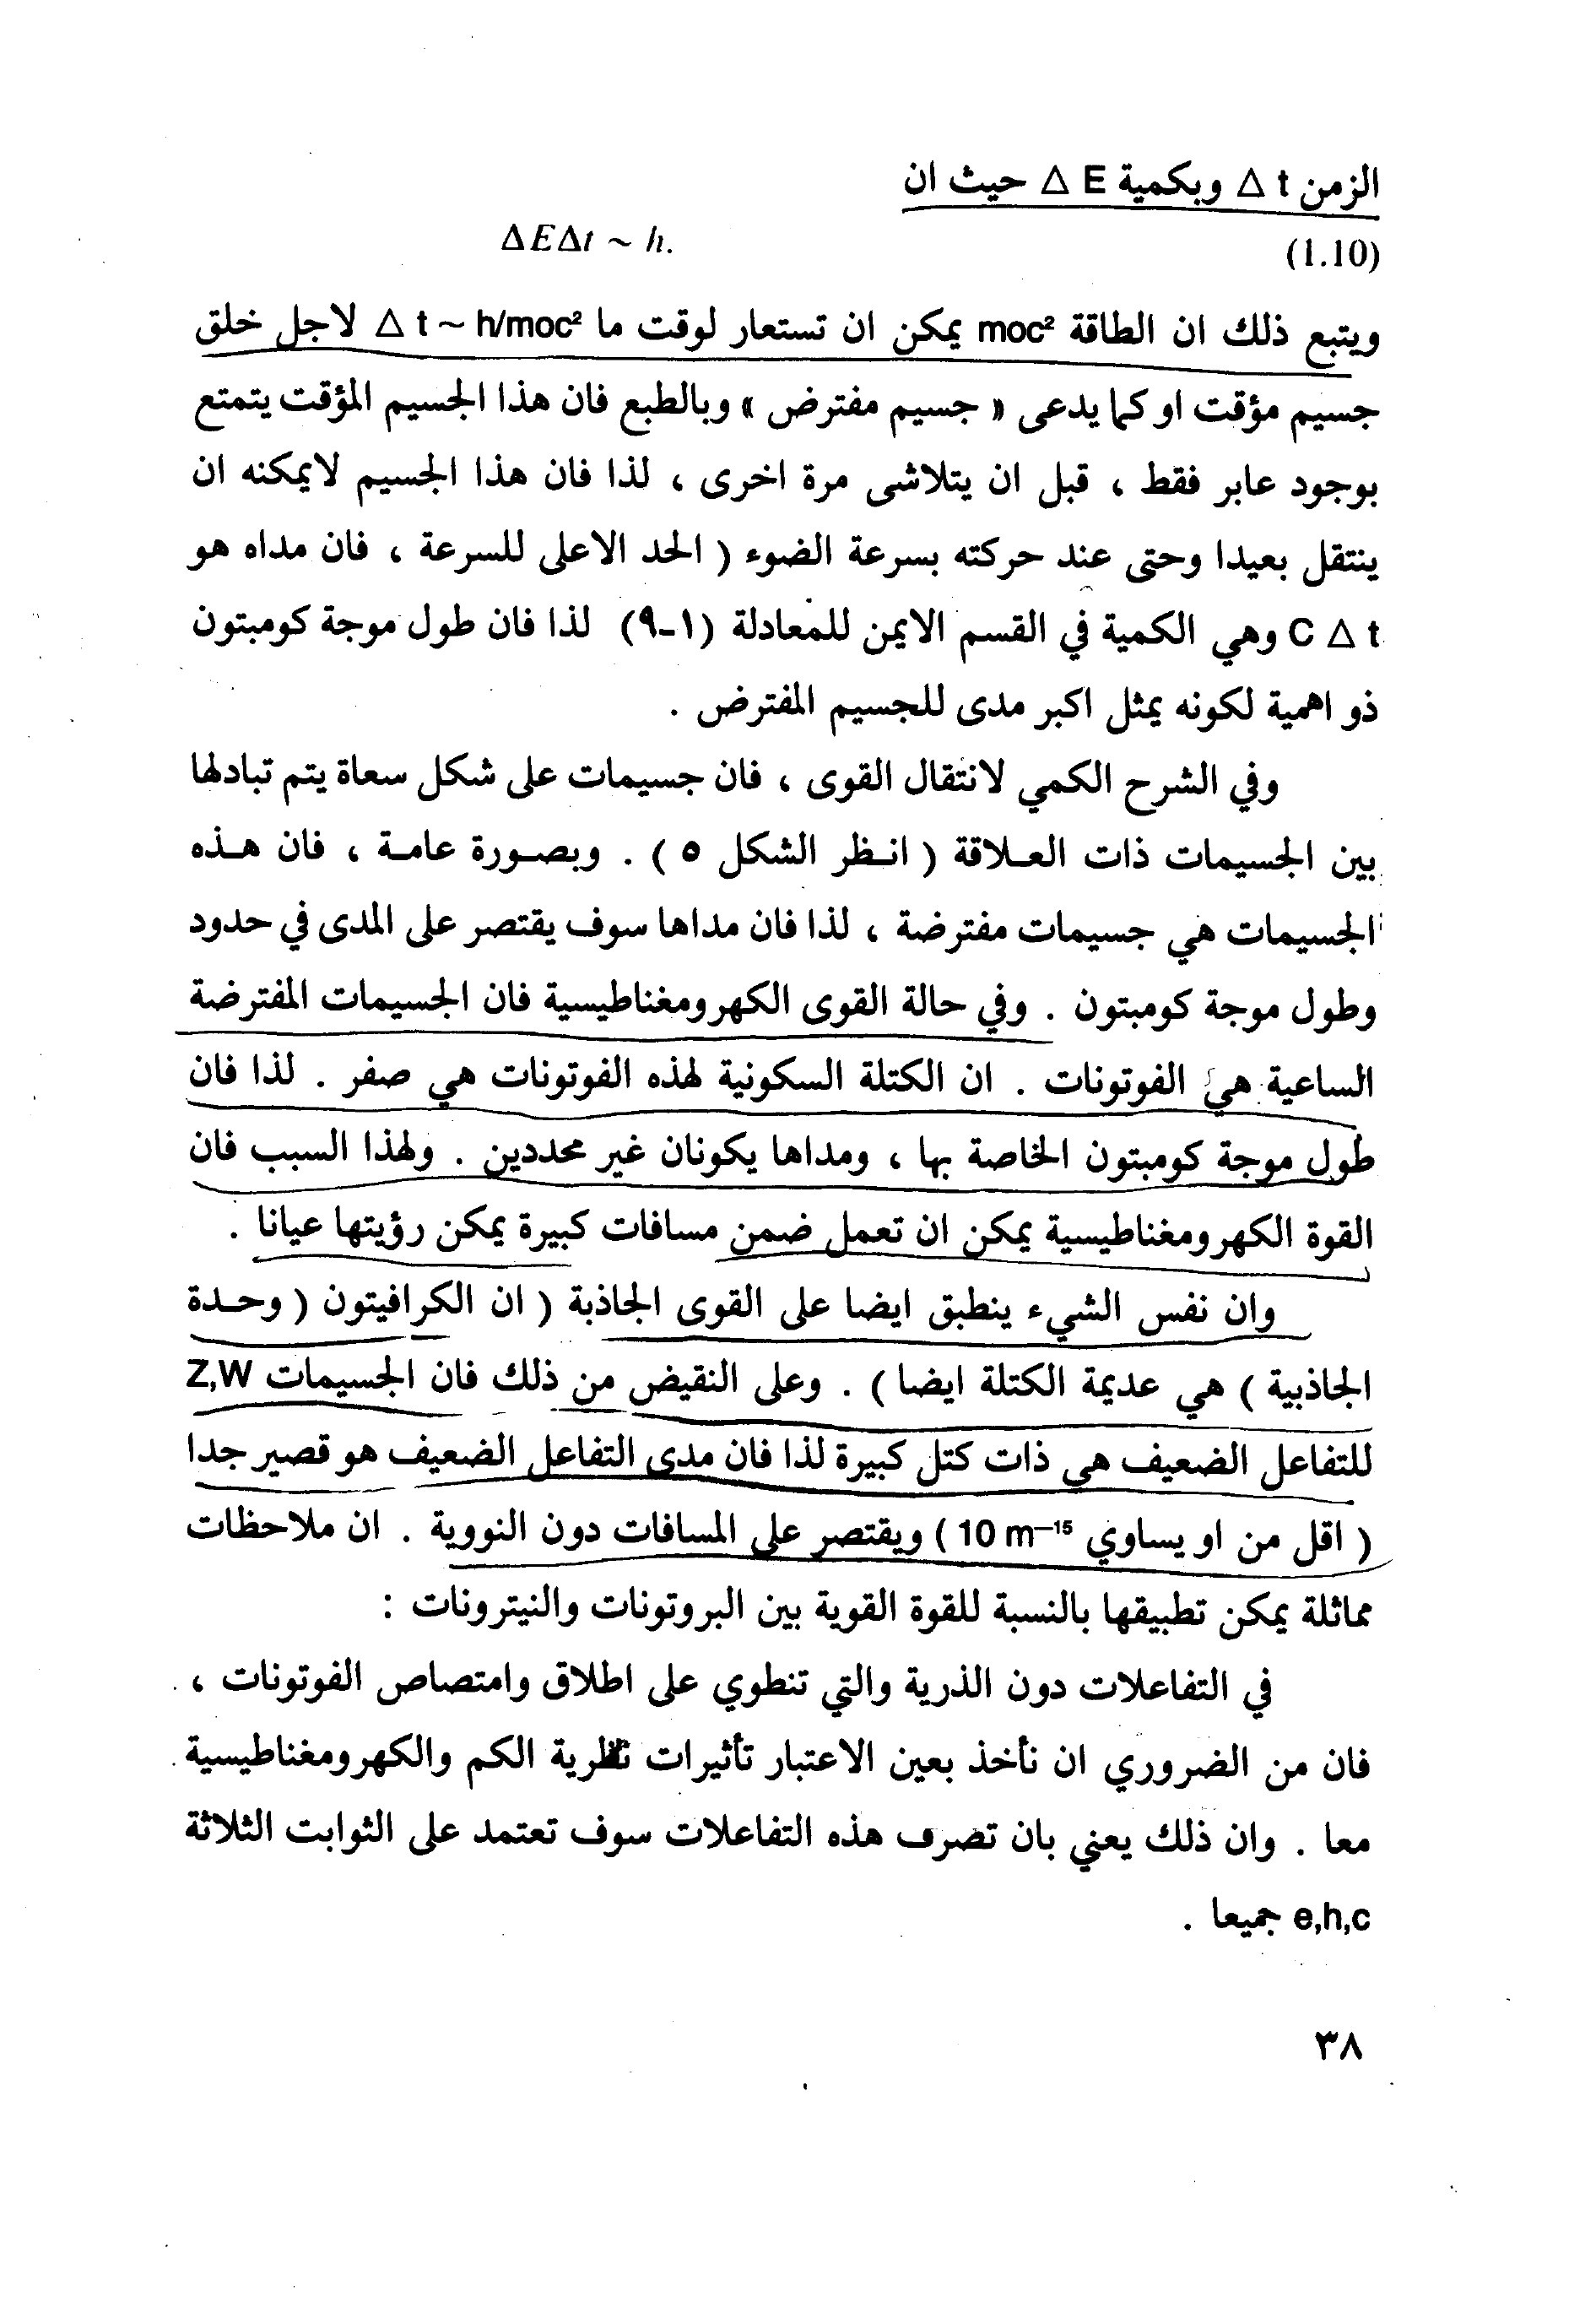 الزمن Δ t وبكمية Δ E حيث ان
ΔEΔt ~ h. (1.10)
ويتبع ذلك ان الطاقة moc² يمكن ان تستعار لوقت ما Δ t ~ h/moc² لاجل خلق
جسيم مؤقت او كما يدعى « جسيم مفترض » وبالطبع فان هذا الجسيم المؤقت يتمتع
بوجود عابر فقط ، قبل ان يتلاشى مرة اخرى ، لذا فان هذا الجسيم لايمكنه ان
ينتقل بعيدا وحتى عند حركته بسرعة الضوء ( الحد الاعلى للسرعة ، فان مداه هو
C Δ t وهي الكمية في القسم الايمن للمعادلة (١-٩) لذا فان طول موجة كومبتون
ذو اهمية لكونه يمثل اكبر مدى للجسيم المفترض .
وفي الشرح الكمي لانتقال القوى ، فان جسيمات على شكل سعاة يتم تبادلها
بين الجسيمات ذات العلاقة ( انظر الشكل ٥ ) . وبصورة عامة ، فان هذه
الجسيمات هي جسيمات مفترضة ، لذا فان مداها سوف يقتصر على المدى في حدود
وطول موجة كومبتون . وفي حالة القوى الكهرومغناطيسية فان الجسيمات المفترضة
الساعية هي الفوتونات . ان الكتلة السكونية لهذه الفوتونات هي صفر . لذا فان
طول موجة كومبتون الخاصة بها ، ومداها يكونان غير محددين . ولهذا السبب فان
القوة الكهرومغناطيسية يمكن ان تعمل ضمن مسافات كبيرة يمكن رؤيتها عيانا .
وان نفس الشيء ينطبق ايضا على القوى الجاذبة ( ان الكرافيتون ( وحدة
الجاذبية ) هي عديمة الكتلة ايضا ) . وعلى النقيض من ذلك فان الجسيمات Z,W
للتفاعل الضعيف هي ذات كتل كبيرة لذا فان مدى التفاعل الضعيف هو قصير جدا
( اقل من او يساوي 10 m⁻¹⁵ ) ويقتصر على المسافات دون النووية . ان ملاحظات
مماثلة يمكن تطبيقها بالنسبة للقوة القوية بين البروتونات والنيترونات :
في التفاعلات دون الذرية والتي تنطوي على اطلاق وامتصاص الفوتونات ،
فان من الضروري ان نأخذ بعين الاعتبار تأثيرات نظرية الكم والكهرومغناطيسية
معا . وان ذلك يعني بان تصرف هذه التفاعلات سوف تعتمد على الثوابت الثلاثة
e,h,c جميعا .
٣٨